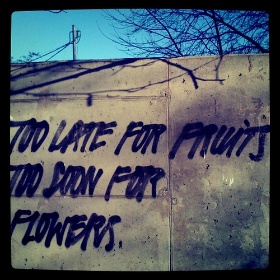 TOO LATE FOR FRUITS
TOO SOON FOR
FLOWERS.